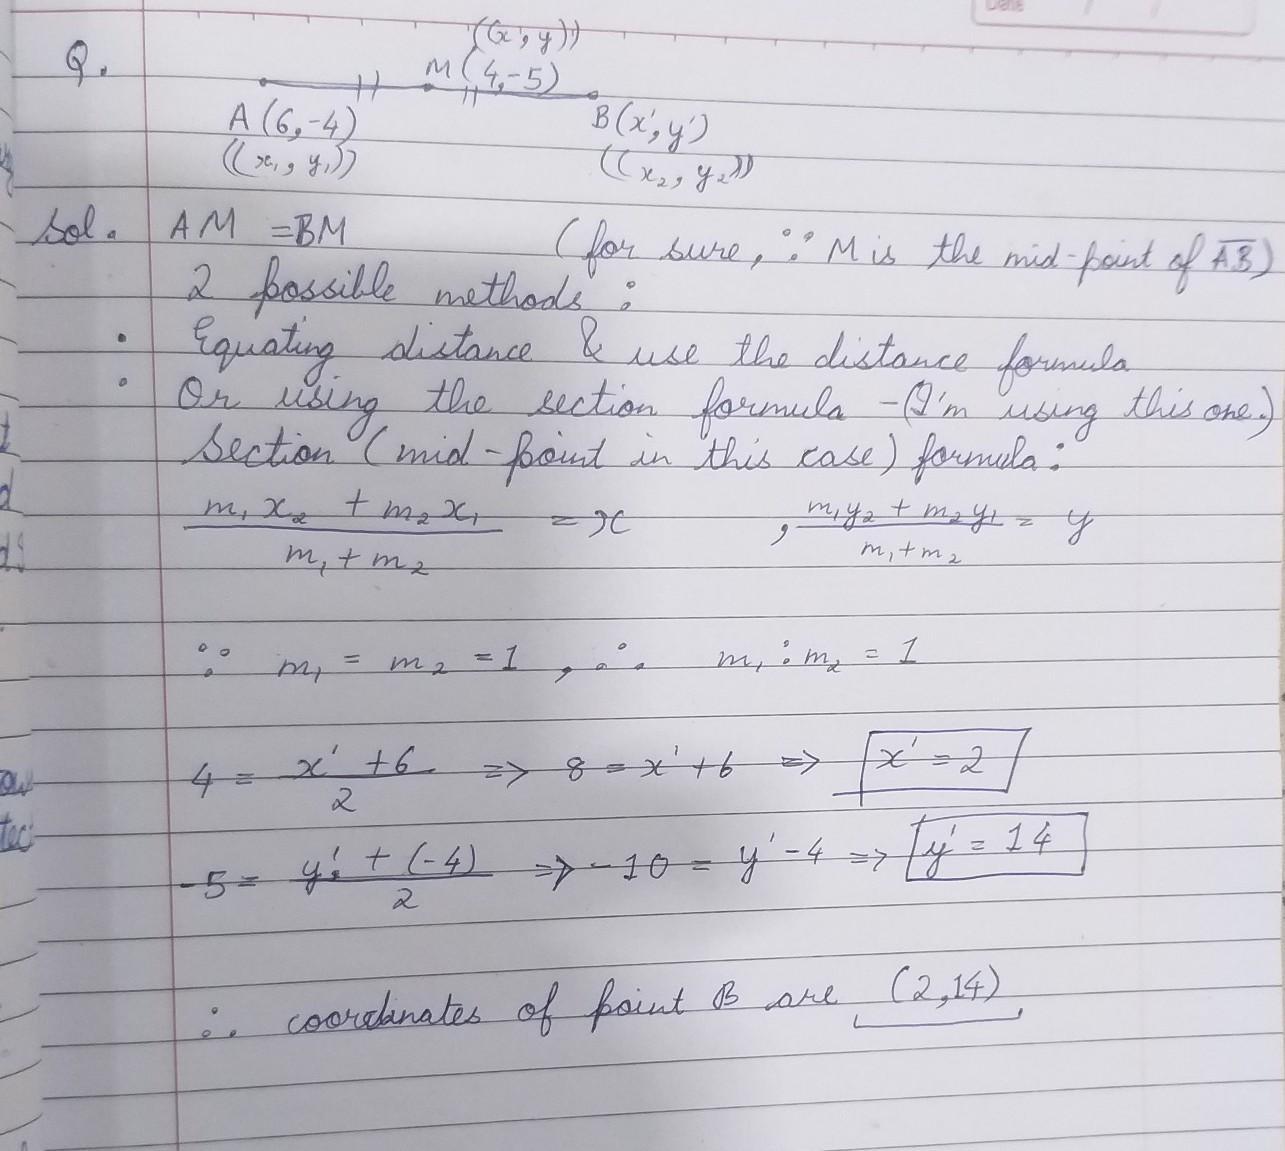 Date
Q.
((x, y))
M(4,-5)
A(6,-4)
B(x', y')
((x₁, y₁))
((x₂, y₂))
Sol. AM = BM (for sure, ∵ M is the mid-point of A̅B̅)
2 possible methods :
• Equating distance & use the distance formula
• Or using the section formula -(I'm using this one.)
Section (mid-point in this case) formula:
(m₁x₂ + m₂x₁)/(m₁ + m₂) = x , (m₁y₂ + m₂y₁)/(m₁+m₂) = y
∵ m₁ = m₂ = 1 , ∴ m₁ : m₂ = 1
4 = (x' + 6)/2 => 8 = x' + 6 => x' = 2
-5 = (y' + (-4))/2 => -10 = y' - 4 => y' = 14
∴ coordinates of point B are (2,14)